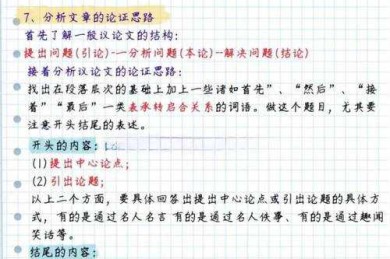 7、分析文章的论证思路
首先了解一般议论文的结构:
提出问题(引论)-一分析问题(本论)-解决问题(结论)
接着分析议论文的论证思路:
找出在段落层次的基础上加上一些诸如首先”、“然后”、“接
着”“最后”一类表承转启合关系的词语。做这个题目,尤其要
注意开头结尾的表述。
开头的内容:
(1)提出中心论点;
(2)引出论题;
以上二个方面,要具体回答出提出中心论点或引出论题的具体方
式,有的是通过名人名言 有的是通过名人佚事、有的是通过趣闻
笑话等。
结尾的内容: